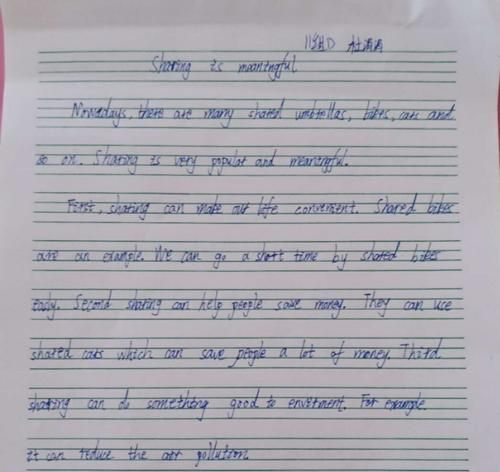 Sharing is meaningful
Nowadays, there are many shared umbrellas, bikes, cars and
so on. Sharing is very popular and meaningful.
First, sharing can make our life convenient. Shared bikes
are an example. We can go a short time by shared bikes
easly. Second sharing can help people save money. They can use
shared cars which can save people a lot of money. Third
sharing can do something good to enverment. For example.
it can reduce the air pollution